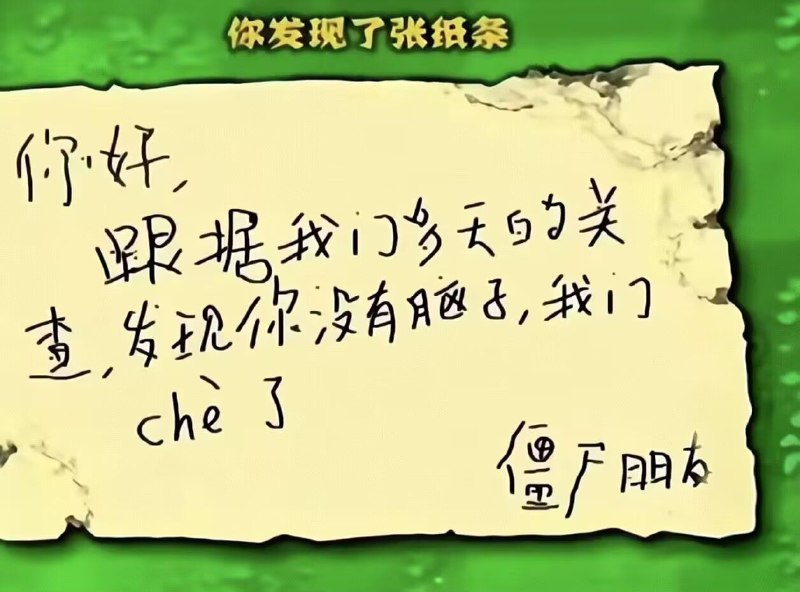 你发现了张纸条
你好,
跟据我们多天的关
查,发现你没有脑子,我们
chè了
僵尸朋友